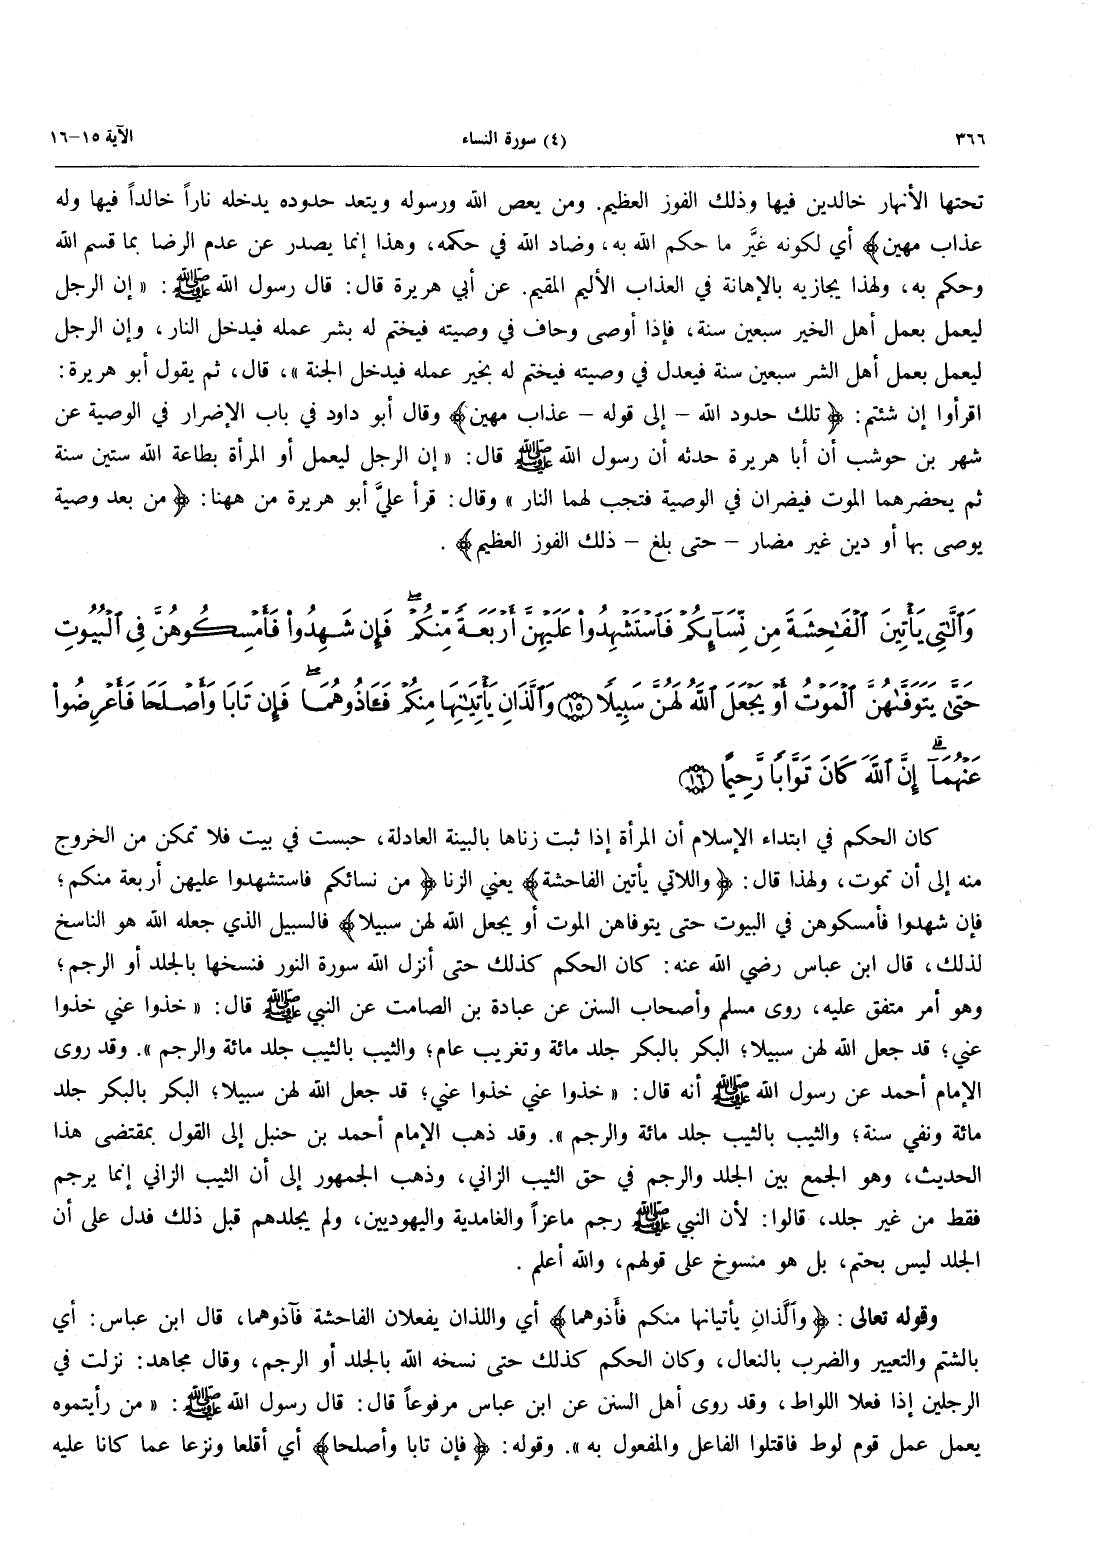 ٣٦٦ (٤) سورة النساء الآية ١٥-١٦
تحتها الأنهار خالدين فيها وذلك الفوز العظيم. ومن يعص الله ورسوله ويتعد حدوده يدخله ناراً خالداً فيها وله
عذاب مهين﴾ أي لكونه غيَّر ما حكم الله به، وضاد الله في حكمه، وهذا إنما يصدر عن عدم الرضا بما قسم الله
وحكم به، ولهذا يجازيه بالإهانة في العذاب الأليم المقيم. عن أبي هريرة قال: قال رسول الله ﷺ: « إن الرجل
ليعمل بعمل أهل الخير سبعين سنة، فإذا أوصى وحاف في وصيته فيختم له بشر عمله فيدخل النار، وإن الرجل
ليعمل بعمل أهل الشر سبعين سنة فيعدل في وصيته فيختم له بخير عمله فيدخل الجنة »، قال، ثم يقول أبو هريرة:
اقرأوا إن شئتم: ﴿ تلك حدود الله – إلى قوله – عذاب مهين﴾ وقال أبو داود في باب الإضرار في الوصية عن
شهر بن حوشب أن أبا هريرة حدثه أن رسول الله ﷺ قال: « إن الرجل ليعمل أو المرأة بطاعة الله ستين سنة
ثم يحضرهما الموت فيضران في الوصية فتجب لهما النار » وقال: قرأ عليَّ أبو هريرة من ههنا: ﴿ من بعد وصية
يوصى بها أو دين غير مضار – حتى بلغ – ذلك الفوز العظيم﴾ .
وَٱلَّٰتِى يَأْتِينَ ٱلْفَٰحِشَةَ مِن نِّسَآئِكُمْ فَٱسْتَشْهِدُوا۟ عَلَيْهِنَّ أَرْبَعَةً مِّنكُمْ ۖ فَإِن شَهِدُوا۟ فَأَمْسِكُوهُنَّ فِى ٱلْبُيُوتِ
حَتَّىٰ يَتَوَفَّىٰهُنَّ ٱلْمَوْتُ أَوْ يَجْعَلَ ٱللَّهُ لَهُنَّ سَبِيلًا ﴿١٥﴾ وَٱلَّذَانِ يَأْتِيَٰنِهَا مِنكُمْ فَـَٔاذُوهُمَا ۖ فَإِن تَابَا وَأَصْلَحَا فَأَعْرِضُوا۟
عَنْهُمَآ ۗ إِنَّ ٱللَّهَ كَانَ تَوَّابًا رَّحِيمًا ﴿١٦﴾
كان الحكم في ابتداء الإسلام أن المرأة إذا ثبت زناها بالبينة العادلة، حبست في بيت فلا تمكن من الخروج
منه إلى أن تموت، ولهذا قال: ﴿ واللاتي يأتين الفاحشة﴾ يعني الزنا ﴿ من نسائكم فاستشهدوا عليهن أربعة منكم؛
فإن شهدوا فأمسكوهن في البيوت حتى يتوفاهن الموت أو يجعل الله لهن سبيلا﴾ فالسبيل الذي جعله الله هو الناسخ
لذلك، قال ابن عباس رضي الله عنه: كان الحكم كذلك حتى أنزل الله سورة النور فنسخها بالجلد أو الرجم؛
وهو أمر متفق عليه، روى مسلم وأصحاب السنن عن عبادة بن الصامت عن النبي ﷺ قال: « خذوا عني خذوا
عني؛ قد جعل الله لهن سبيلا؛ البكر بالبكر جلد مائة وتغريب عام؛ والثيب بالثيب جلد مائة والرجم ». وقد روى
الإمام أحمد عن رسول الله ﷺ أنه قال: « خذوا عني خذوا عني؛ قد جعل الله لهن سبيلا؛ البكر بالبكر جلد
مائة ونفي سنة؛ والثيب بالثيب جلد مائة والرجم ». وقد ذهب الإمام أحمد بن حنبل إلى القول بمقتضى هذا
الحديث، وهو الجمع بين الجلد والرجم في حق الثيب الزاني، وذهب الجمهور إلى أن الثيب الزاني إنما يرجم
فقط من غير جلد، قالوا: لأن النبي ﷺ رجم ماعزاً والغامدية واليهوديين، ولم يجلدهم قبل ذلك فدل على أن
الجلد ليس بحتم، بل هو منسوخ على قولهم، والله أعلم .
وقوله تعالى: ﴿ وٱلَّذانِ يأتيانها منكم فأذوهما﴾ أي واللذان يفعلان الفاحشة فآذوهما، قال ابن عباس: أي
بالشتم والتعيير والضرب بالنعال، وكان الحكم كذلك حتى نسخه الله بالجلد أو الرجم، وقال مجاهد: نزلت في
الرجلين إذا فعلا اللواط، وقد روى أهل السنن عن ابن عباس مرفوعاً قال: قال رسول الله ﷺ: « من رأيتموه
يعمل عمل قوم لوط فاقتلوا الفاعل والمفعول به ». وقوله: ﴿ فإن تابا وأصلحا﴾ أي أقلعا ونزعا عما كانا عليه